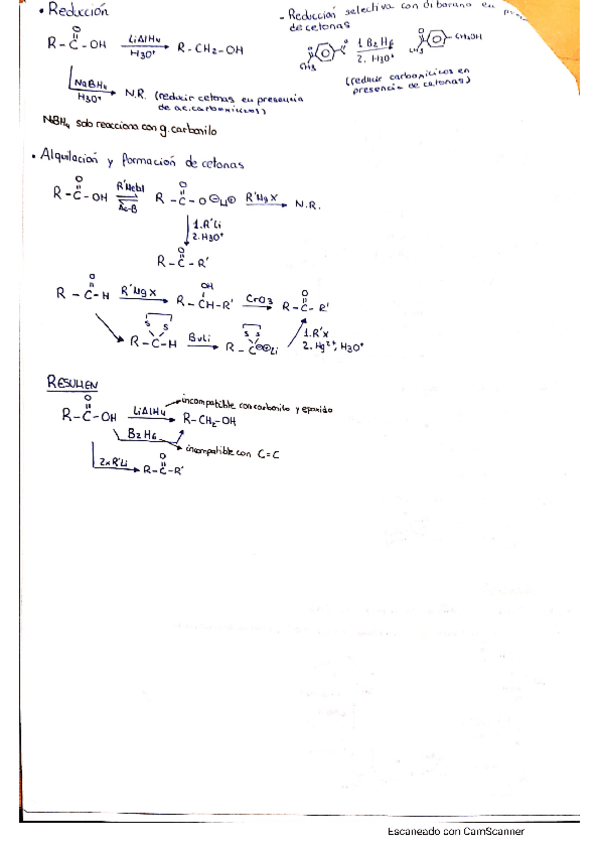 • Reducción
R-C(=O)-OH LiAlH4 H3O+ R-CH2-OH
NaBH4 H3O+ N.R. (reducir cetonas en presencia de ac. carboxílicos)
NBH4 solo reacciona con g. carbonilo
- Reducción selectiva con diborano en
de cetonas
CH3 1. B2H6 2. H3O+ CH3 CH2OH
(reducir carboxílicos en presencia de cetonas)
• Alquilación y formación de cetonas
R-C(=O)-OH Ac-B R-C(=O)-O⊖Li⊕ R'MgX N.R.
1. R'Li
2. H3O+
R-C(=O)-R'
R-C(=O)-H R'MgX R-CH(OH)-R' CrO3 R-C(=O)-R'
S S R-C-H BuLi S S R-C⊖⊕Li 1. R'X 2. Hg2+, H3O+
RESUMEN
R-C(=O)-OH LiAlH4 R-CH2-OH
incompatible con carbonilo y epoxido
B2H6
incompatible con C=C
2x R'Li R-C(=O)-R'
Escaneado con CamScanner